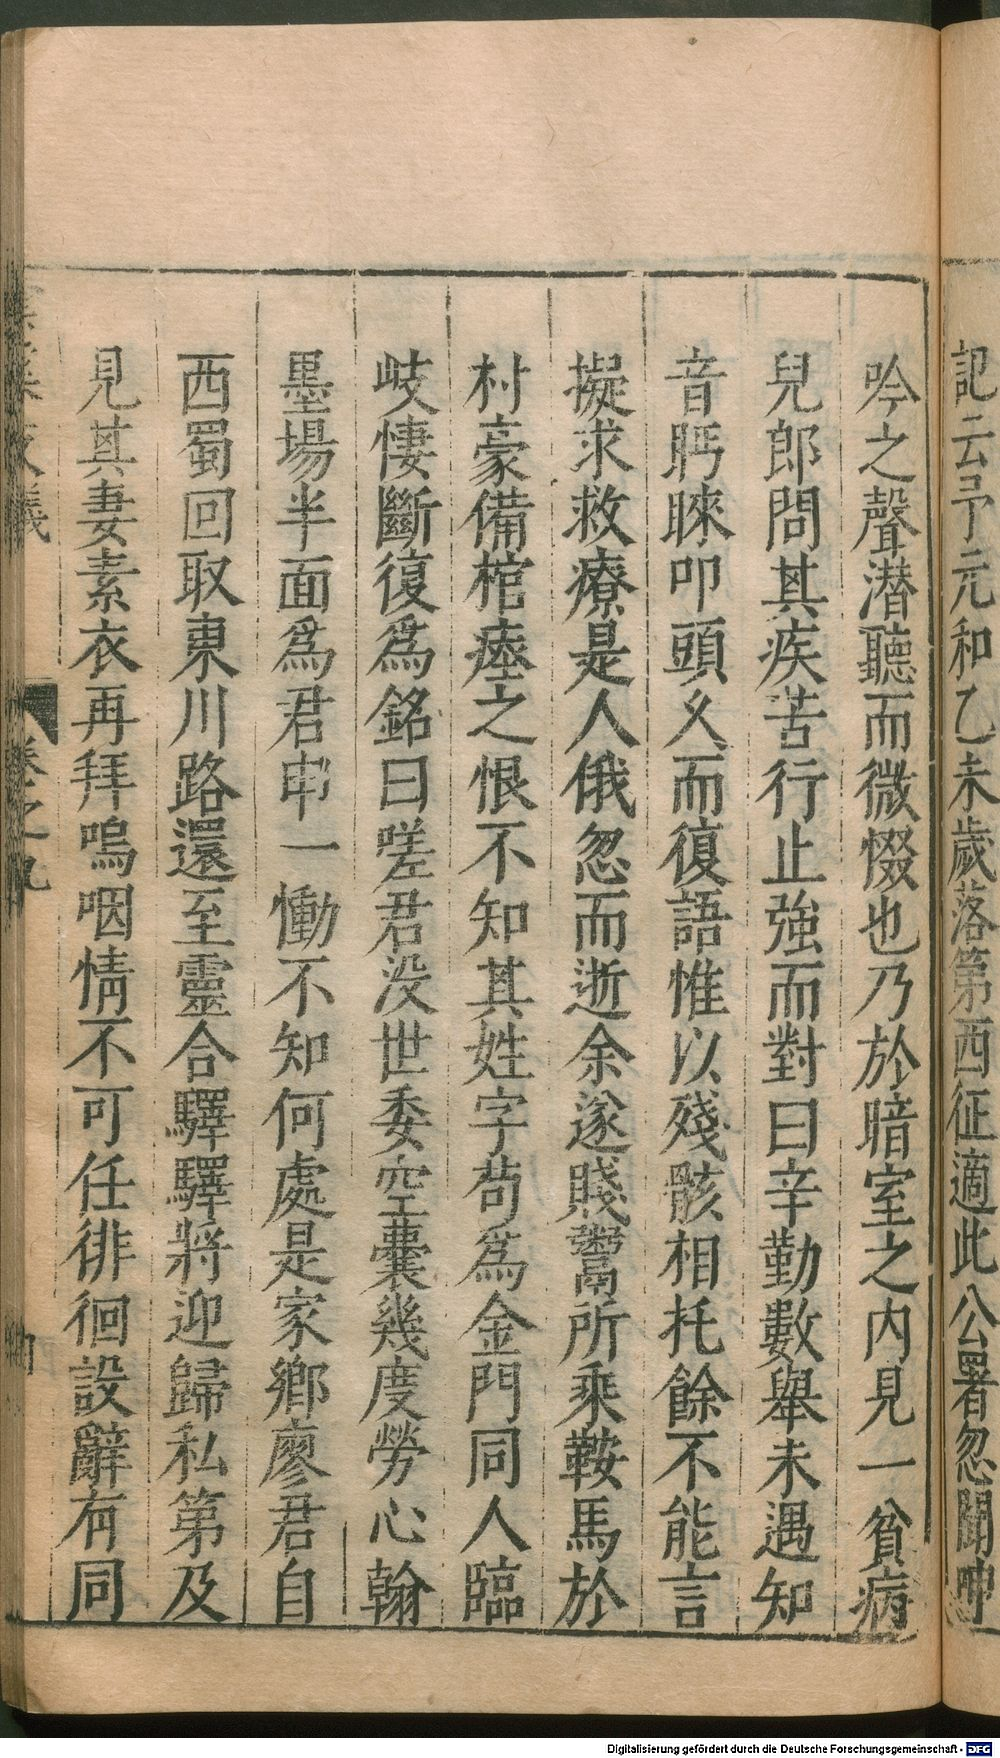 記云予元和乙未歲落第西征適此公署忽聞呻
吟之聲潜聽而微惙也乃於暗室之内見一貧病
兒郎問其疾苦行止強而對曰辛勤數舉未遇知
音眄睞叩頭久而復語惟以殘骸相托餘不能言
擬求救療是人俄忽而逝余遂賤鬻所乘鞍馬於
村豪備棺瘞之恨不知其姓字苟爲金門同人臨
岐悽斷復爲銘曰嗟君没世委空囊幾度勞心翰
墨場半面爲君申一慟不知何處是家鄉廖君自
西蜀回取東川路還至靈合驛驛將迎歸私第及
見其妻素衣再拜嗚咽情不可任徘徊設辭有同
卷之九
Digitalisierung gefördert durch die Deutsche Forschungsgemeinschaft - DFG